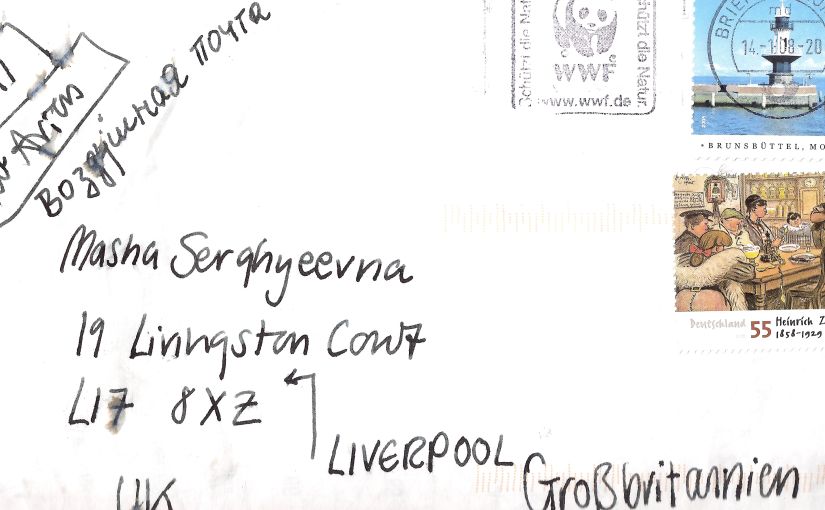 Воздушная почта
Schützt die Natur
WWF
www.wwf.de
14.-1.08-20
BRUNSBÜTTEL, MO
Deutschland 55 Heinrich Z
1858-1929
Masha Serghyeevna
19 Livingston Court
L17 8XZ
LIVERPOOL
UK
Großbritannien